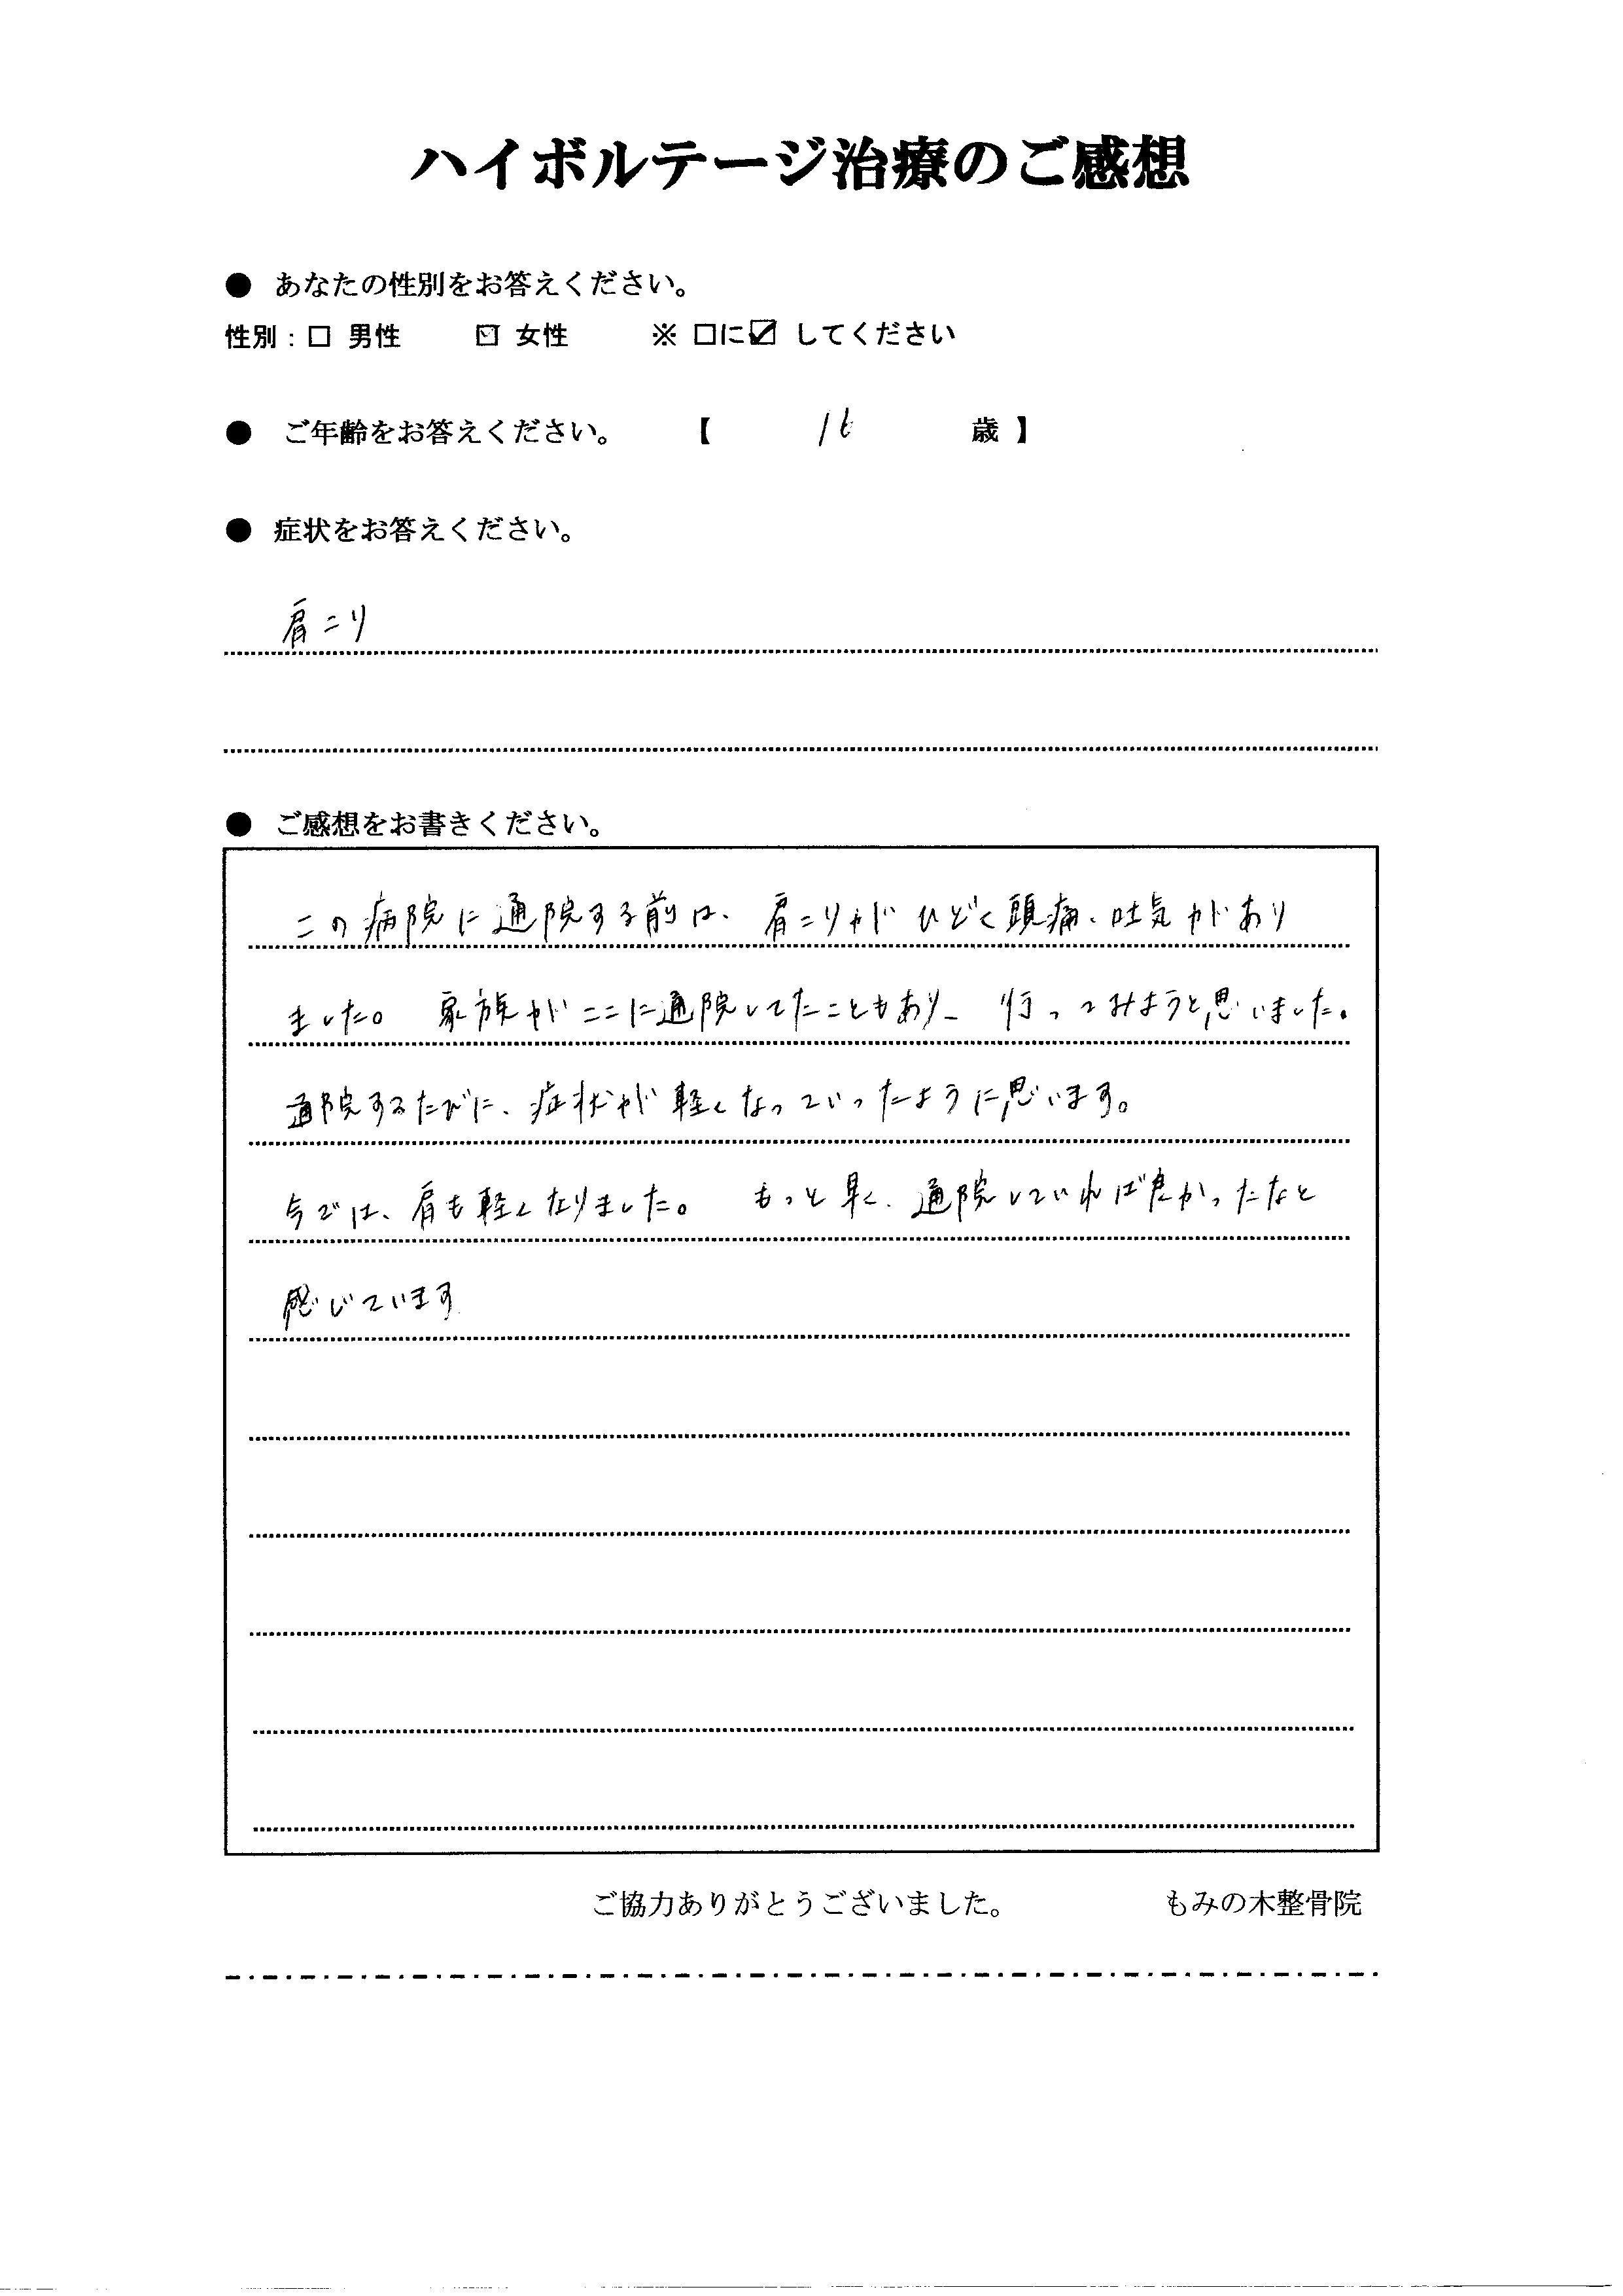 ハイボルテージ治療のご感想
● あなたの性別をお答えください。
性別：□ 男性　☑ 女性　※ □に☑ してください
● ご年齢をお答えください。　【　16　歳 】
● 症状をお答えください。
肩こり
● ご感想をお書きください。
この病院に通院する前は、肩こりがひどく頭痛、吐気があり
ました。　家族がここに通院してたこともあり、行ってみようと思いました。
通院するたびに、症状が軽くなっていったように思います。
今では、肩も軽くなりました。　もっと早く、通院していれば良かったなと
感じています
ご協力ありがとうございました。　もみの木整骨院